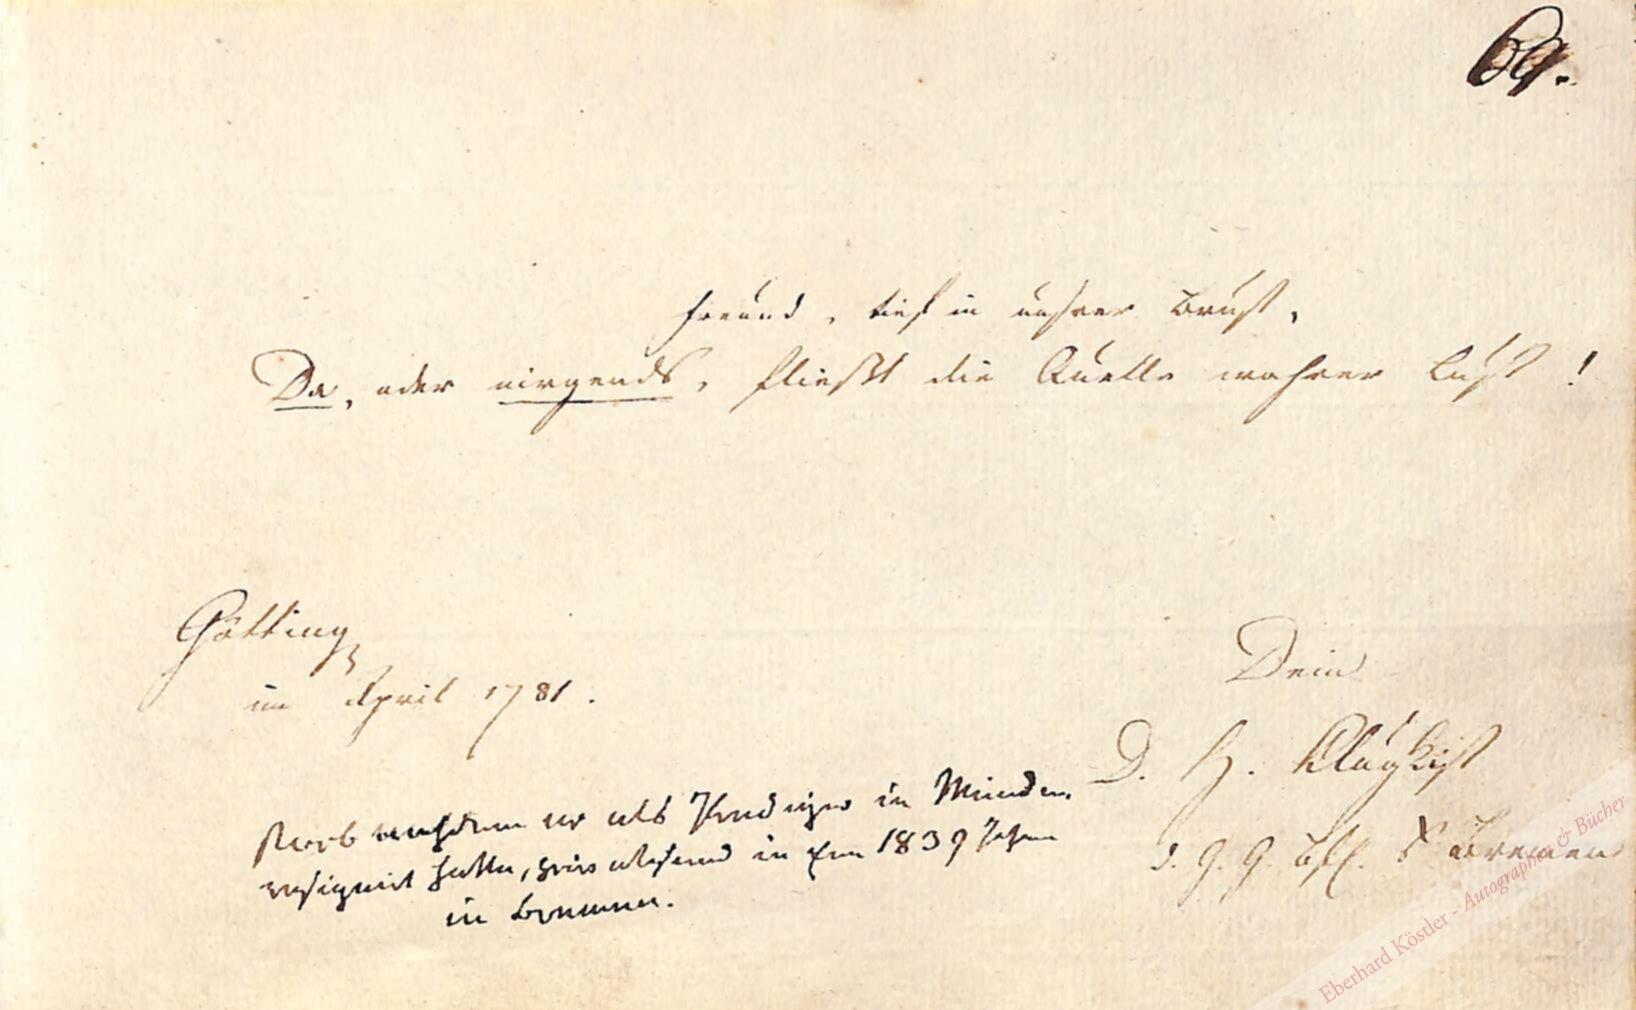 69.
Freund, tief in unsrer Brust,
Da, oder nirgends, fließt die Quelle wahrer Lust!
Götting
im April 1781.
Dein
D. H. Klugkist
d. G. G. Bfl. a Bremen
starb nachdem er als Prediger in Münden
resignirt hatte, privatisirend in 1839 Jahre
in Bremen.
Eberhard Köstler - Autographen & Bücher